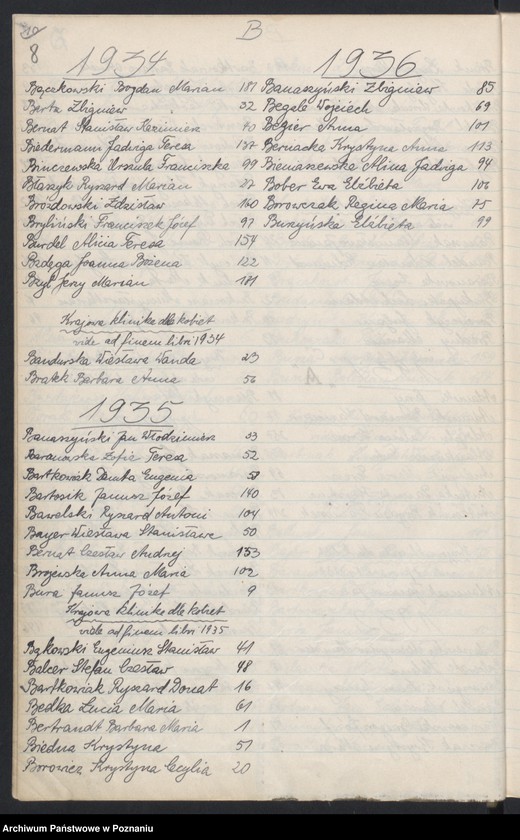 B
8
1934
Bączkowski Bogdan Marian 181
Berta Zbigniew 32
Bernat Stanisław Kazimierz 70
Biedermann Jadwiga Teresa
Binczewska Urszula Franciszka 99
Błaszyk Ryszard Marian 27
Brózdowski Zdzisław 160
Brybiński Franciszek Józef 97
Burdel Alicja Teresa 154
Bzdęga Joanna Bożena 122
Bzyl Jerzy Marian 181
Krajowa klinika dla kobiet
vide ad finem libri 1934
Bandurska Wiesława Wanda 23
Bratek Barbara Anna 56
1935
Banaszyński Jan Włodzimierz 33
Baranowska Zofia Teresa 52
Bartkowiak Danuta Eugenia
Bartosik Janusz Józef 140
Bawelski Ryszard Antoni 104
Bayer Wiesława Stanisława 50
Bernat Czesław Andrzej 153
Brojewska Anna Maria 102
Bura Janusz Józef 9
Krajowa klinika dla kobiet
vide ad finem libri 1935
Bąkowski Eugeniusz Stanisław 41
Balcer Stefan Czesław 48
Bartkowiak Ryszard Donat 16
Bedka Lucia Maria 61
Bertrandt Barbara Maria 1
Biedna Krystyna 51
Borowicz Krystyna Cecylia 20
1936
Banaszyński Zbigniew 85
Begale Wojciech 69
Bezier Anna 101
Bernacka Krystyna Anna 113
Bieniaszewska Alina Jadwiga 94
Bober Ewa Elżbieta 106
Borowczak Regina Maria 75
Buszyńska Elżbieta 99
Archiwum Państwowe w Poznaniu